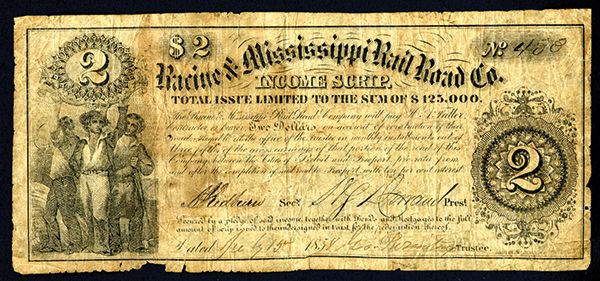 2
$2
No 408
Racine & Mississippi Rail Road Co.
INCOME SCRIP.
TOTAL ISSUE LIMITED TO THE SUM OF $125,000.
The Racine & Mississippi Rail Road Company will pay
or bearer, Two Dollars, on account of construction of their
at the office of the Trustee in
of the earnings of that portion of the road of this
Company between the Cities of Beloit and Freeport, pro rata from
and after the completion of said road to Freeport, with ten per cent interest
2
Secy.
Prest
Secured by a pledge of said income, together with Bonds and Mortgages to the full
amount of scrip issued to the undersigned in trust for the redemption thereof.
Dated 1858
Trustee